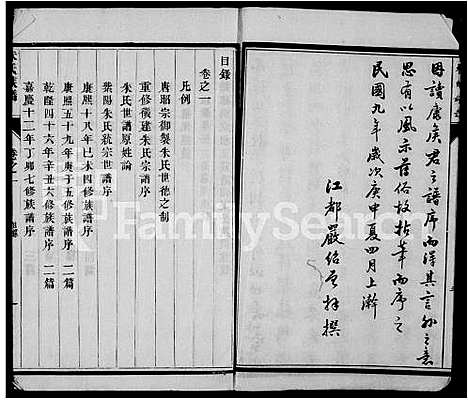 因讀唐侯君之譜序而深其言外之意
思有以風示薄俗故拈筆而序之
民國九年歲次庚申夏四月上澣
江都嚴
撰
目錄
卷之一
凡例
唐
宗御製朱氏世德之制
重修儀建朱氏宗譜序
朱氏世譜原姓論
滎陽朱氏統宗世譜序
康熙十八年己未四修族譜序
康熙五十九年庚子五修族譜序 二篇
乾隆四十六年辛丑六修族譜序 二篇
嘉慶十二年丁卯七修族譜序
卷之一
目錄
一
FamilySearch